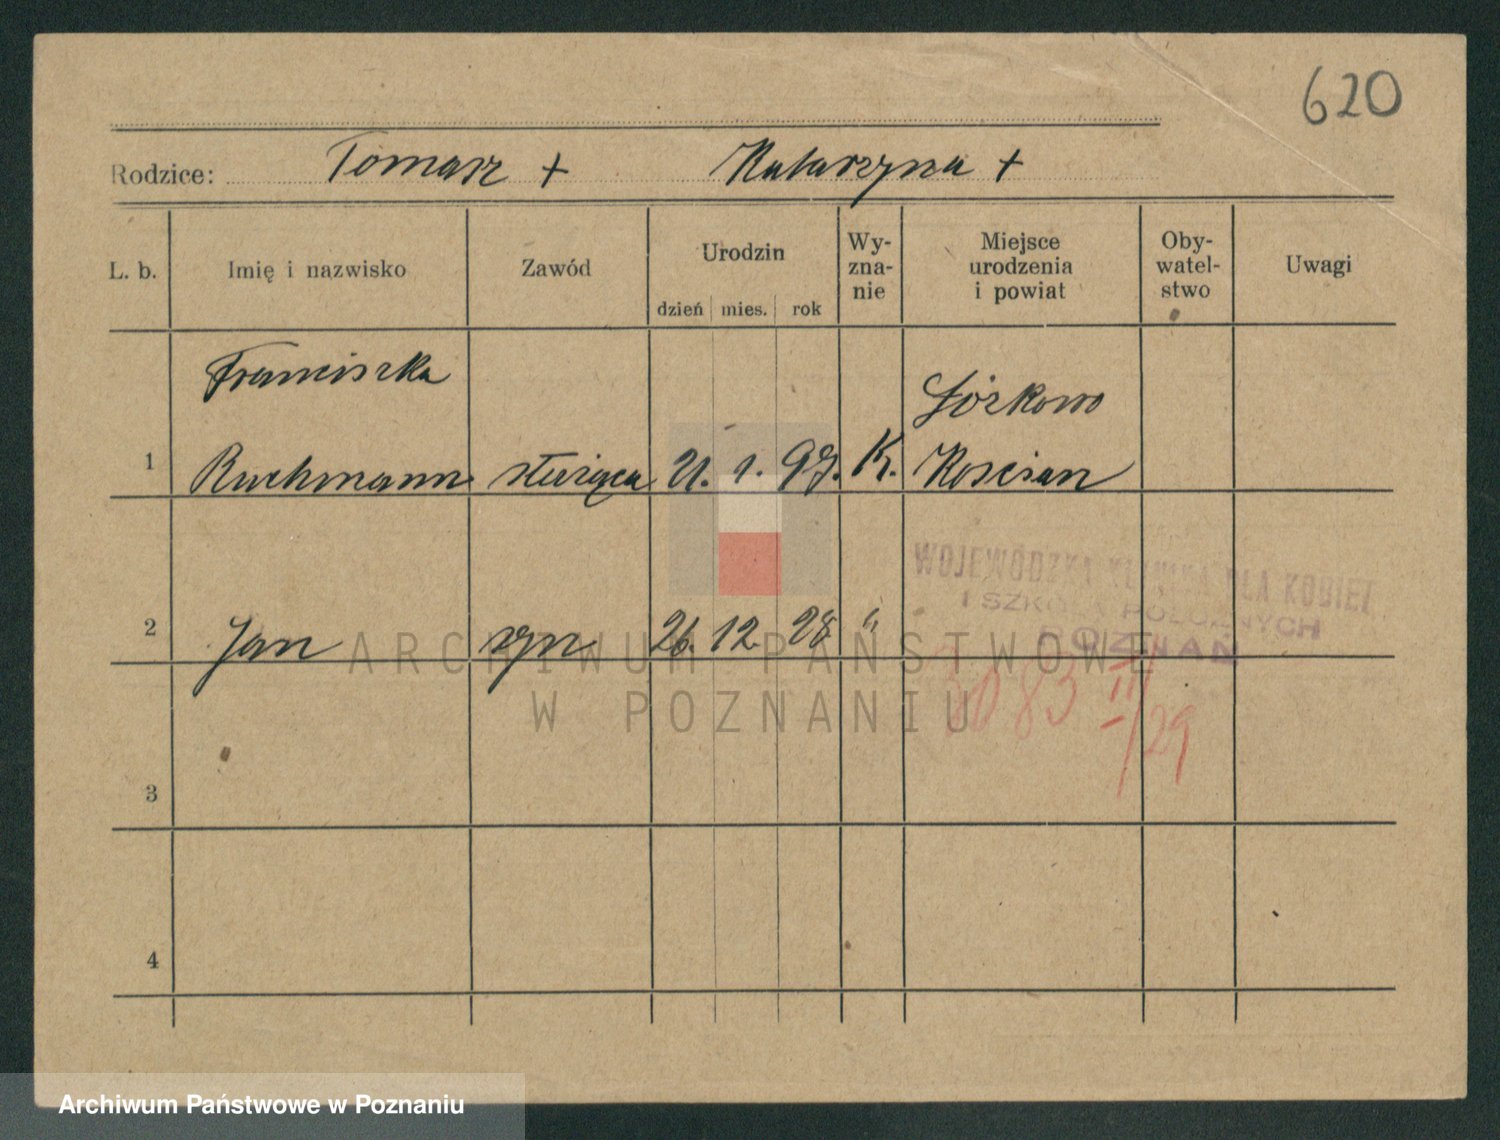 620
Rodzice: Tomasz + Katarzyna +
L. b. Imię i nazwisko Zawód Urodzin dzień mies. rok Wy-zna-nie Miejsce urodzenia i powiat Oby-watel-stwo Uwagi
Franciszka
1 Ruchmann służąca 21. 1. 97. K. Kościan
2 Jan syn 26. 12. 28 "
WOJEWÓDZKA KLINIKA DLA KOBIET
I SZKOŁA POŁOŻNYCH
POZNAŃ
3083 III/29
3
4
ARCHIWUM PAŃSTWOWE
W POZNANIU
Archiwum Państwowe w Poznaniu